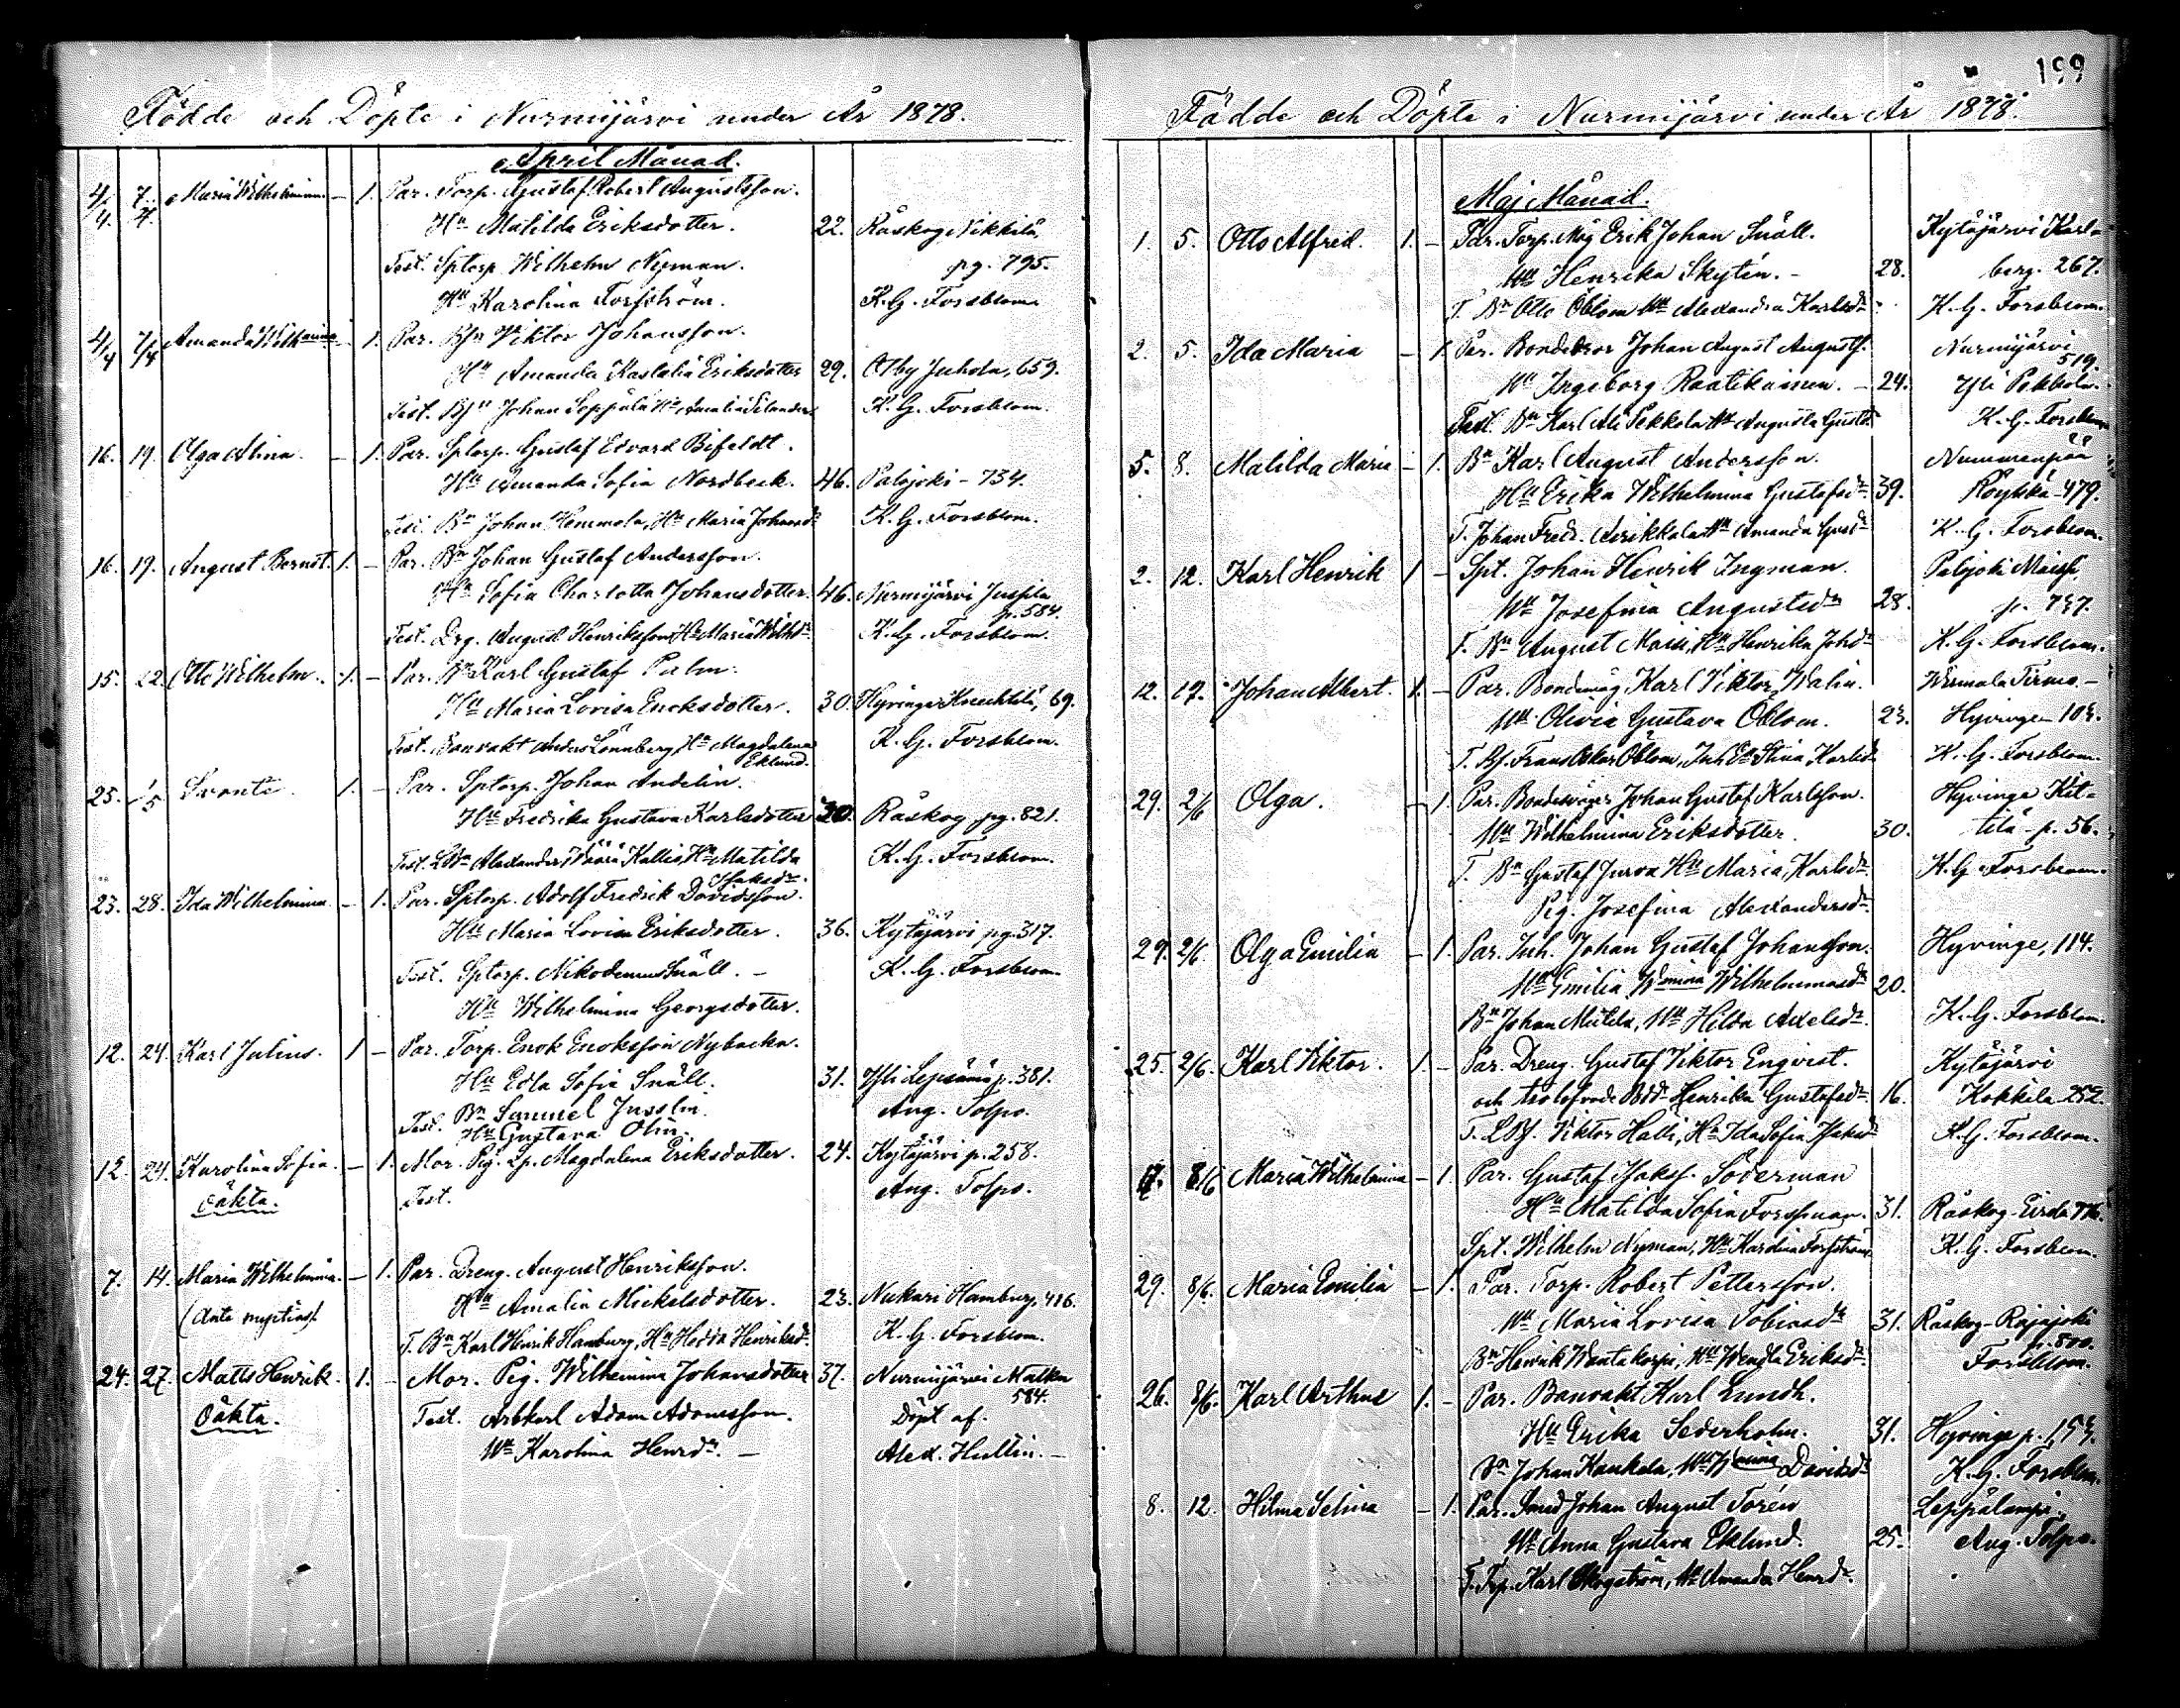 199
Födde och Döpte i Nurmijärvi under År 1878.
April Månad.
4/4. 7/4. Maria Wilhelmina — 1. Par. Torp. Gustaf Robert Augustsson.
Hu Matilda Eriksdotter. 22. Råskog Nikkilä,
Test. Sptorp. Wilhelm Nyman. pg. 795.
Hu Karolina Forsström. K. G. Forsblom
4/4 7/4 Amanda Wilhmina — 1. Par. Bsn Viktor Johansson.
Hu Amanda Eriksdotter 29. Otby Juhola, 659.
Test. Bsn Johan Seppälä Hu Amalia K. G. Forsblom.
16. 19. Olga Alina. — 1. Par. Sptorp. Gustaf Edvard Bifeldt.
Hu Amanda Sofia Nordbeck. 46. Palojoki - 734.
Test. Bn Johan Hemmola, Hu Maria Johansdr K. G. Forsblom.
16. 19. August Bernst. 1. — Par. Bn Johan Gustaf Andersson.
Hu Sofia Charlotta Johansdotter. 46. Nurmijärvi Juspila
p. 584.
Test. Drg. August Henriksson, Hu Maria Wilhdr K. G. Forsblom
15. 22. Otto Wilhelm. 1. — Par. Bn Karl Gustaf Palm.
Hu Maria Lovisa Enoksdotter. 30. Hyvinge Knechtilä, 69.
Test. Banvakt Anders Lönnberg Hu Magdalena K. G. Forsblom.
Eklund.
25. 1/5 Svante. 1. — Par. Sptorp. Johan Andelin.
Hu Fredrika Gustava Karlsdotter 30. Råskog pg. 821.
Test. LBn Alexander Wäärä Kallis Hu Matilda K. G. Forsblom.
Isaksdr.
23. 28. Ida Wilhelmina — 1. Par. Sptorp. Adolf Fredrik Davidsson.
Hu Maria Lovisa Eriksdotter. 36. Kytäjärvi pg. 317.
Test. Sptorp. Nikodemus Snäll. — K. G. Forsblom
Hu Wilhelmina Georgsdotter.
12. 24. Karl Julius. 1 — Par. Torp. Enok Enoksson Nybacka.
Hu Edla Sofia Snäll. 31. Yli Lepsämä p. 381.
Test. Bn Samuel Jusslin. Aug. Tolpo.
Hu Gustava Olin.
12. 24. Karolina Sofia. — 1. Mor. Pig. Magdalena Eriksdotter. 24. Kytäjärvi p. 258.
oäkta. Test. Aug. Tolpo.
7. 14. Maria Wilhelmina. — 1. Par. Dreng. August Henriksson.
Hu Amalia Mickelsdotter. 23. Nukari Hamburg, 416.
T. Bn Karl Henrik Hamburg, Hu Hedda Henriksdr K. G. Forsblom.
24. 27. Matts Henrik. 1. — Mor. Pig. Wilhelmina Johansdotter 37. Nurmijärvi
584.
Oäkta. Test. Arbkarl Adam Adamsson. Döpt af.
Hu Karolina Henrdr. — Alex. Hullin. —
Födde och Döpte i Nurmijärvi under År 1878.
Maj Månad.
1. 5. Otto Alfred. 1. — Par. Torp. Måg Erik Johan Snäll. Kytäjärvi Karl-
Hu Henrika Skytén. — 28. berg. 267.
T. Bn Otto Öblom Hu Alexandra Karlsdr K. G. Forsblom.
2. 5. Ida Maria — 1. Par. Bondebror Johan August Augustf. Nurmijärvi
519.
Hu Ingeborg Raatikainen. — 24. Yli Pekkola.
Test. Bn Karl Ali Pekkola Hu Augusta Gustdr K. G. Forsblom
5. 8. Matilda Maria — 1. Bn Karl August Andersson. Nummenpää
Hu Erika Wilhelmina Gustafsdr 39. Röykkä - 479.
T. Johan Fredr. Hu Amanda Gusdr K. G. Forsblom.
2. 12. Karl Henrik 1 — Spt. Johan Henrik Ingman. Palojoki
Hu Josefina Augustsdr 28. p. 737.
T. Bn August Maisi, Hu Henrika Johdr K. G. Forsblom.
12. 17. Johan Albert. 1. — Par. Bondemåg Karl Viktor Walin.
Hu Olivia Gustava Öblom. 23. Hyvinge 103.
T. Bs. Frans Oskar Öblom, Stina Karlsdr K. G. Forsblom.
29. 2/6 Olga. — 1. Par. Bondesvåger Johan Gustaf Karlsson. Hyvinge Kit-
Hu Wilhelmina Eriksdotter. 30. tilä - p. 56.
T. Bn Gustaf Jurva Hu Maria Karlsdr K. G. Forsblom.
Pig. Josefina Alexandersdr.
29. 2/6. Olga Emilia — 1. Par. Inh. Johan Gustaf Johansson. Hyvinge, 114.
Hu Emilia Wmina Wilhelmusdr 20.
Bn Johan Mutila, Hu Hilda Axelsdr. K. G. Forsblom.
25. 2/6. Karl Viktor. 1. — Par. Dreng. Gustaf Viktor Enqvist. Kytäjärvi
och trolofvade Bdr Henrika Gustafsdr 16. Kokkila 252.
T. LBf. Viktor Halli, Hu Ida Sofia Isaksdr K. G. Forsblom.
17. 8/6 Maria Wilhelmina — 1. Par. Gustaf Isaksf. Söderman
Hu Matilda Sofia Forssman. 31. Råskog -
Spt. Wilhelm Nyman, Hu Karolina Forsström K. G. Forsblom.
29. 8/6. Maria Emilia — 1. Par. Torp. Robert Pettersson.
Hu Maria Lovisa Tobiasdr 31. Råskog - Rajajoki
p. 800.
Bn Henrik Wantakorpi, Hu Wendla Eriksdr. Forsblom.
26. 8/6. Karl Arthur 1. — Par. Banvakt Karl Lundh.
Hu Erika Sederholm. 31. Hyvinge p. 153.
Bn Johan Kaukela, Hu Wmina Davidsdr K. G. Forsblom.
8. 12. Hilma Selina — 1. Par. Smed Johan August Torén Leppälampi.
Hu Anna Gustava Eklund. 25. Aug. Tolpo.
T. Trp. Karl Bergström, Hu Amanda Henrdr.